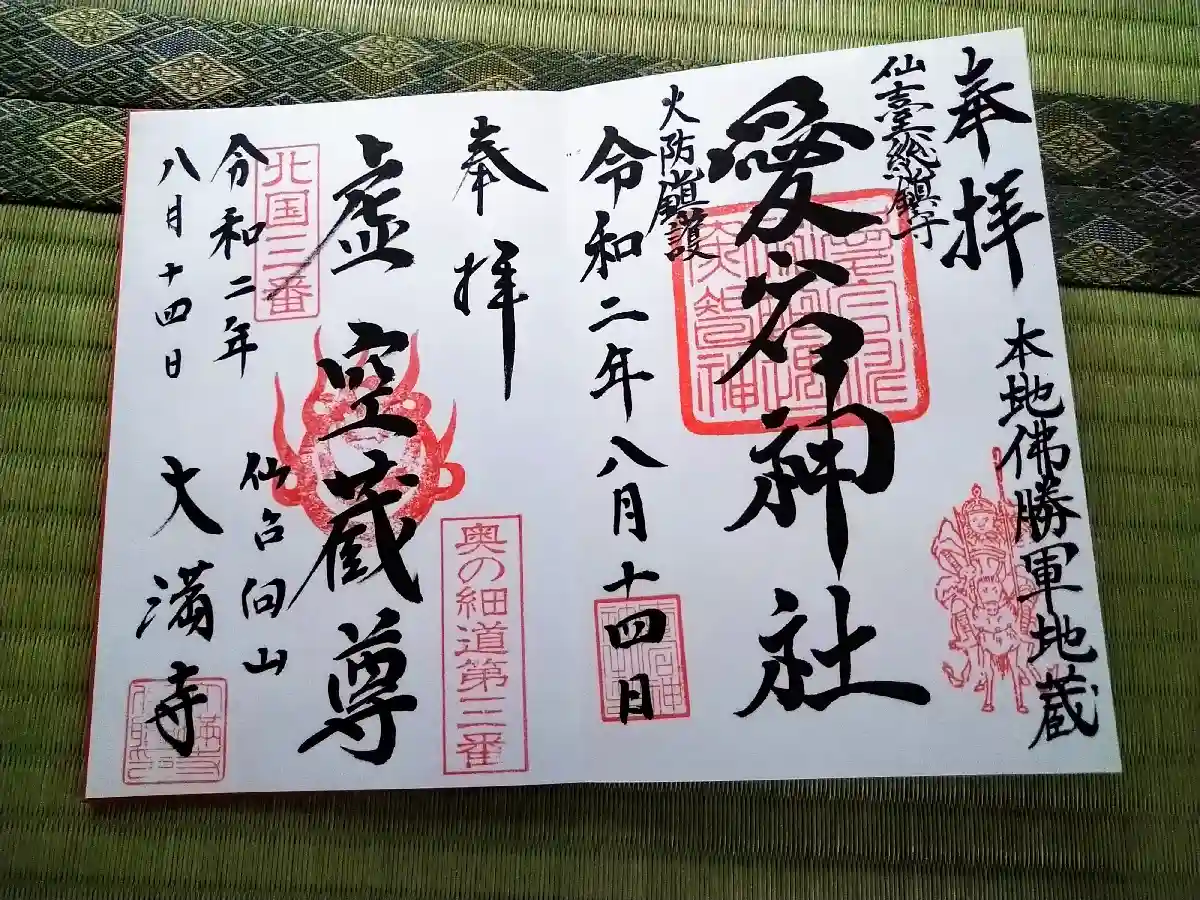 奉拝
仙臺総鎮守
本地佛勝軍地蔵
愛宕神社
火防鎮護
令和二年八月十四日
奉拝
奥の細道第三番
虚空蔵尊
北国三番
仙台向山
令和二年
八月十四日
大満寺